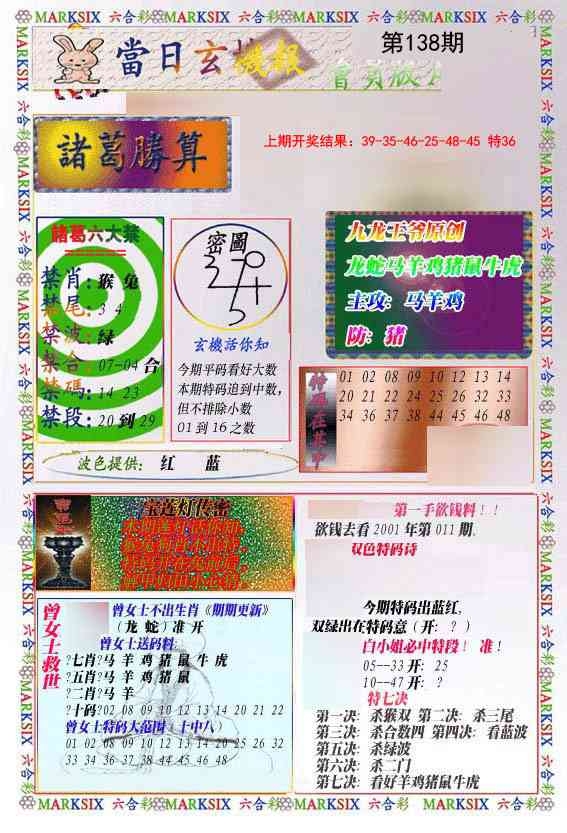 MARKSIX 六合彩 MARKSIX 六合彩 MARKSIX 六合彩 MARKSIX 六合彩 MARKSIX
當日玄機報
第138期
上期开奖结果：39-35-46-25-48-45 特36
諸葛勝算
諸葛六大禁
禁肖：猴 兔
禁尾：3 4
禁波：绿
禁合：07-04 合
禁碼：14 23
禁段：20 到 29
密圖
玄機活你知
今期平码看好大数
本期特码追到中数，
但不排除小数
01 到 16 之数
九龙王爷原创
龙蛇马羊鸡猪鼠牛虎
主攻：马羊鸡
防：猪
特码在其中
01 02 08 09 10 12 13 14
20 21 22 24 25 26 32 33
34 36 37 38 44 45 46 48
波色提供： 红 蓝
宝莲灯传密
第一手欲钱料！！
欲钱去看 2001 年第 011 期．
双色特码诗
今期特码出蓝红，
双绿出在特码意（开：？）
白小姐必中特段！ 准！
05--33 开：25
10--47 开：？
特七决
第一决：杀猴双 第二决：杀三尾
第三决：杀合数四 第四决：看蓝波
第五决：杀绿波
第六决：杀二门
第七决：看好羊鸡猪鼠牛虎
曾女士救世
曾女士不出生肖《期期更新》
（龙 蛇）准 开
曾女士送码料：
?七肖?马 羊 鸡 猪 鼠 牛 虎
?五肖?马 羊 鸡 猪 鼠
?二肖?马 羊
?十码?02 08 09 10 12 13 14 20 21 22
曾女士特码大范围（十中八）
01 02 08 09 10 12 13 14 20 25 26 32
33 34 36 37 38 44 45 46 48
MARKSIX 六合彩 MARKSIX 六合彩 MARKSIX 六合彩 MARKSIX 六合彩 MARKSIX